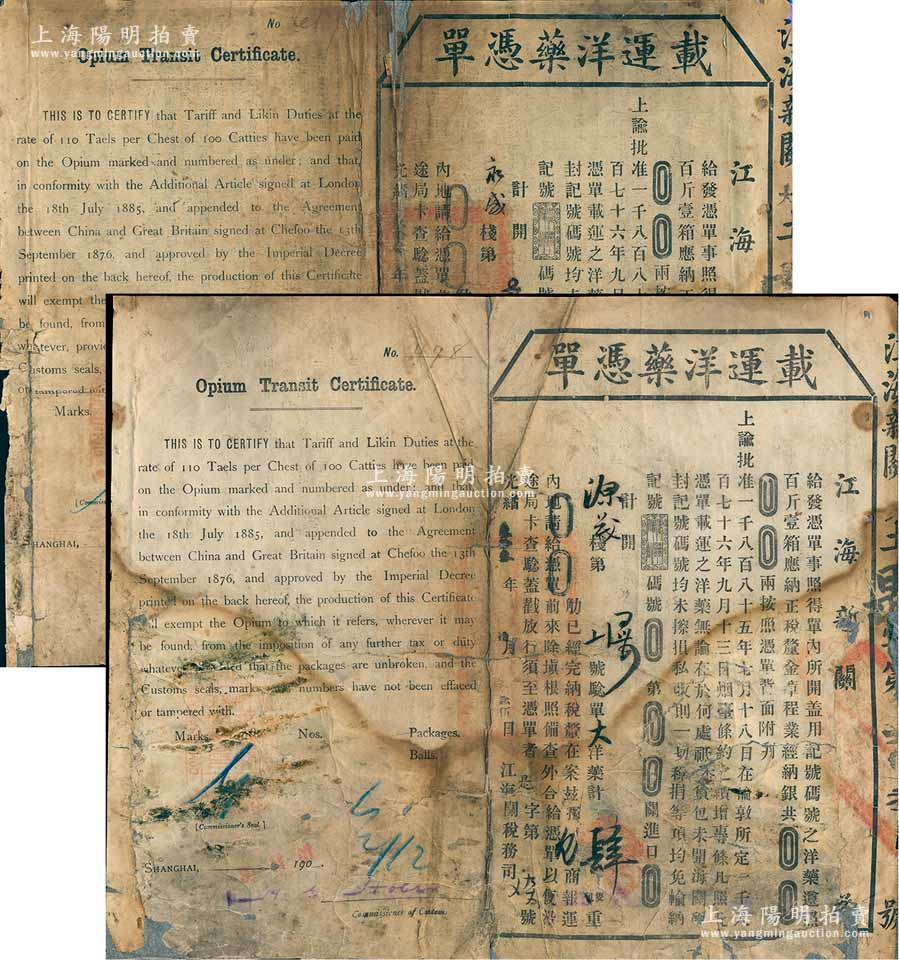 No
上海陽明拍賣
www.yangmingauction.com
Opium Transit Certificate.
THIS IS TO CERTIFY that Tariff and Likin Duties at the
rate of 110 Taels per Chest of 100 Catties have been paid
on the Opium marked and numbered as under; and that,
in conformity with the Additional Article signed at London
the 18th July 1885, and appended to the Agreement
between China and Great Britain signed at Chefoo the 13th
September 1876, and approved by the Imperial Decree
printed on the back hereof, the production of this Certificate
will exempt the
be found, from
whatever, provid
Customs seals,
or tampered wit
Marks.
SHANGHAI,
上海陽明拍賣
www.yangmingauction.com
單憑藥洋運載
江海
給發憑單事照得
百斤壹箱應納正
兩按
上諭批准一千八百八十
百七十六年九月
憑單載運之洋藥
封記號碼號均未
記號
碼號
計開
永成棧第
內地請給憑單
途局卡查驗蓋戳
光緒
年
江海新關
No. 498
Opium Transit Certificate.
THIS IS TO CERTIFY that Tariff and Likin Duties at the
rate of 110 Taels per Chest of 100 Catties have been paid
on the Opium marked and numbered as under; and that,
in conformity with the Additional Article signed at London
the 18th July 1885, and appended to the Agreement
between China and Great Britain signed at Chefoo the 13th
September 1876, and approved by the Imperial Decree
printed on the back hereof, the production of this Certificate
will exempt the Opium to which it refers, wherever it may
be found, from the imposition of any further tax or duty
whatever, provided that the packages are unbroken, and the
Customs seals, marks and numbers have not been effaced
or tampered with.
Marks
Nos.
Packages.
Balls.
[Commissioner's Seal.]
SHANGHAI, 190
2/12
Commissioner of Customs.
上海陽明拍賣
www.yangmingauction.com
單憑藥洋運載
江海新關
給發憑單事照得單內所開蓋用記號碼號之洋藥遵照
百斤壹箱應納正稅釐金章程業經納銀共
兩按照憑單背面附刋
上諭批准一千八百八十五年七月十八日在倫敦所定一千
百七十六年九月十三日烟臺條約之續增專條凡照
憑單載運之洋藥無論在於何處祇須貨包未開海關
封記號碼號均未擦損私改則一切稅捐等項均免輸納
記號
碼號
第
關進口
計開
棧第
號驗單
洋藥計
肆
重
觔已經完納稅釐在案茲據
商報運
內地請給憑單前來除填根照備查外合給憑單以便沿
途局卡查驗蓋戳放行須至憑單者
字第
號
光緒
年
月
日
江海關稅務司
江海新關
第
號
上海陽明拍賣
www.yangmingauction.com